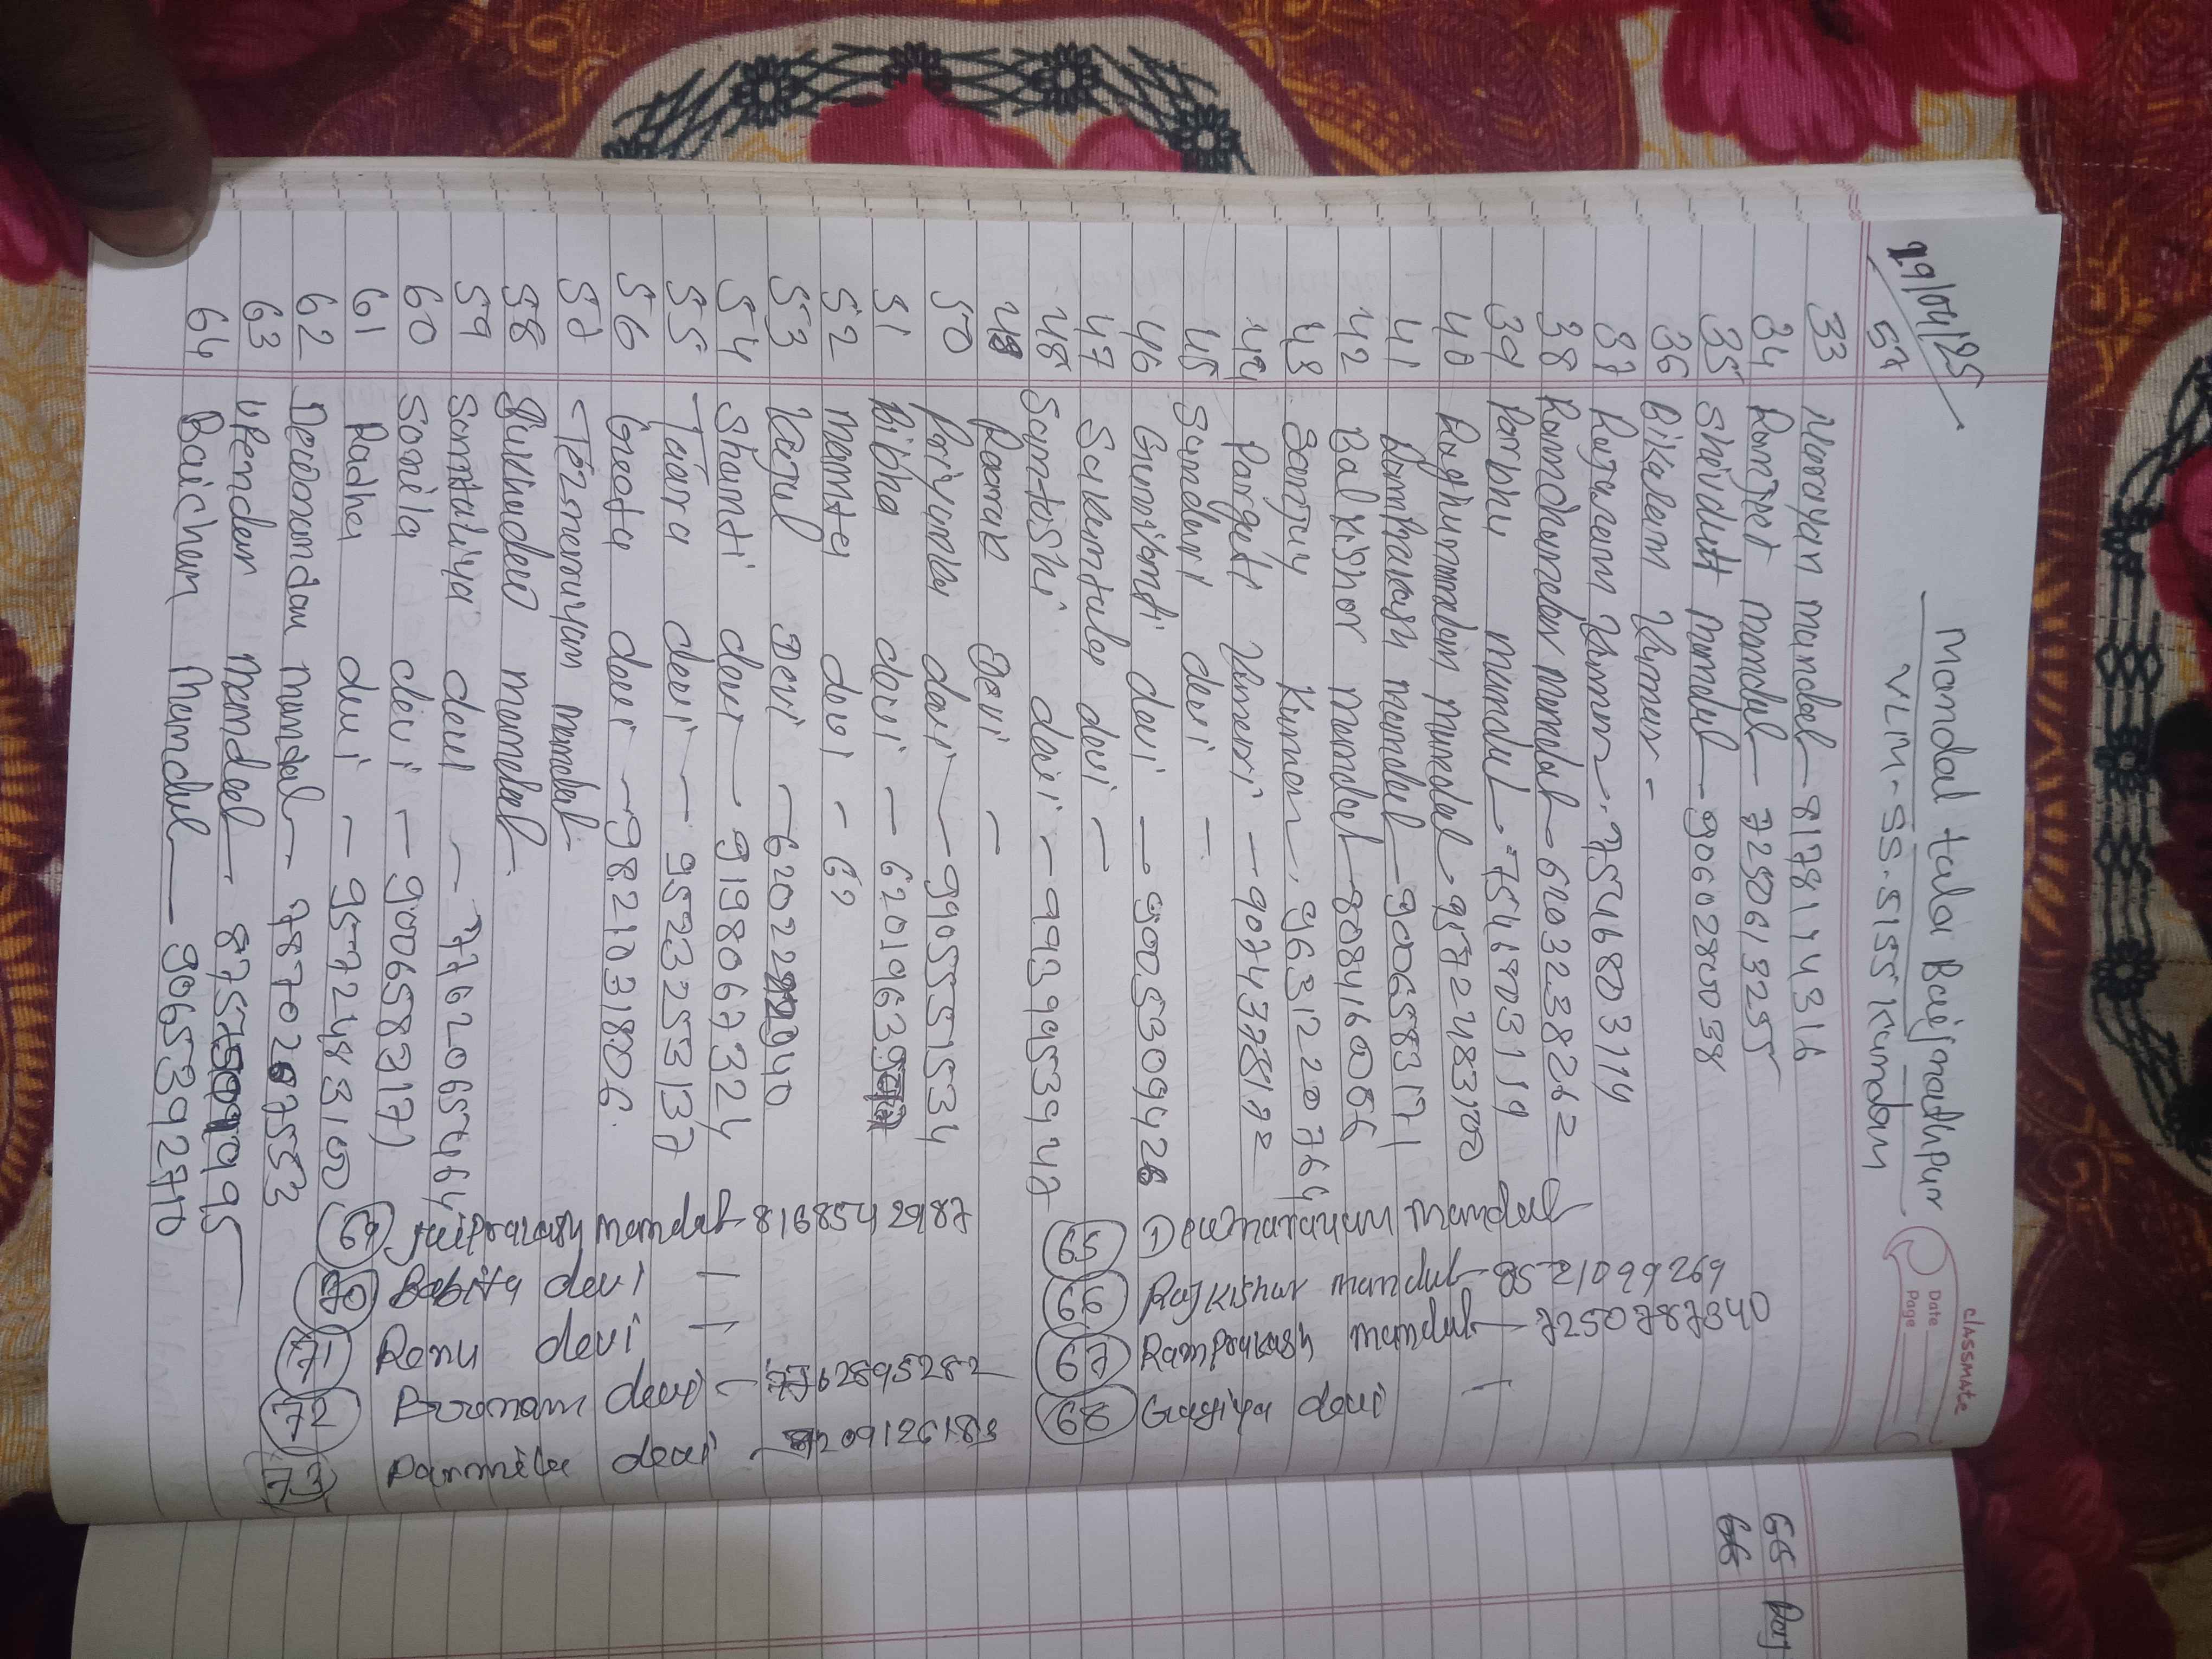 29/04/25
57
Mandal tola Baijnathpur
VLM-SS-5155 Kundan
classmate
Date
Page
33 Narayan mandal - 8178174316
34 Ranjet mandal - 7250613255
35 Shivdutt mandal - 9060280038
36 Bikaram Kumar -
37 Rajaram Kumar - 75416803119
38 Ramchandar mandal - 6203238262
39 Parbhu mandal - 7546803119
40 mandal - 9572483100
41 Ramprakash mandal - 9006583171
42 Balkishor mandal - 8084160086
43 Sanjay Kumar - 9631220764
44 Pargati Kumari - 9074378172
45 Sundari devi -
46 devi - 9005309428
47 Sakuntala devi -
48 Santoshi devi - 9939953947
49 Devi -
50 devi - 9905551534
51 Bibha devi - 62019639
52 Mamta devi - 62
53 Kajul Devi -
54 Shanti devi - 9198067324
55 Taara devi - 9523253137
56 Geeta devi - 9821031806
57 Tejnarayan mandal -
58 Sukhadev mandal -
59 devi - 77620657464
60 devi - 9006583171
61 Radha devi - 9572483100
62 Devanandan mandal - 7870267553
63 Upender Mandal -
64 Baichan Mandal - 9065392710
65 Devnarayan mandal
66 Rajkishor mandal - 8521099269
67 Ramprakash mandal - 7250787340
68 devi -
69 Jaiprakash mandal - 81685429187
70 Babita devi -
71 Renu devi -
72 devi - 7762895282
73 devi -
65 Raj
66